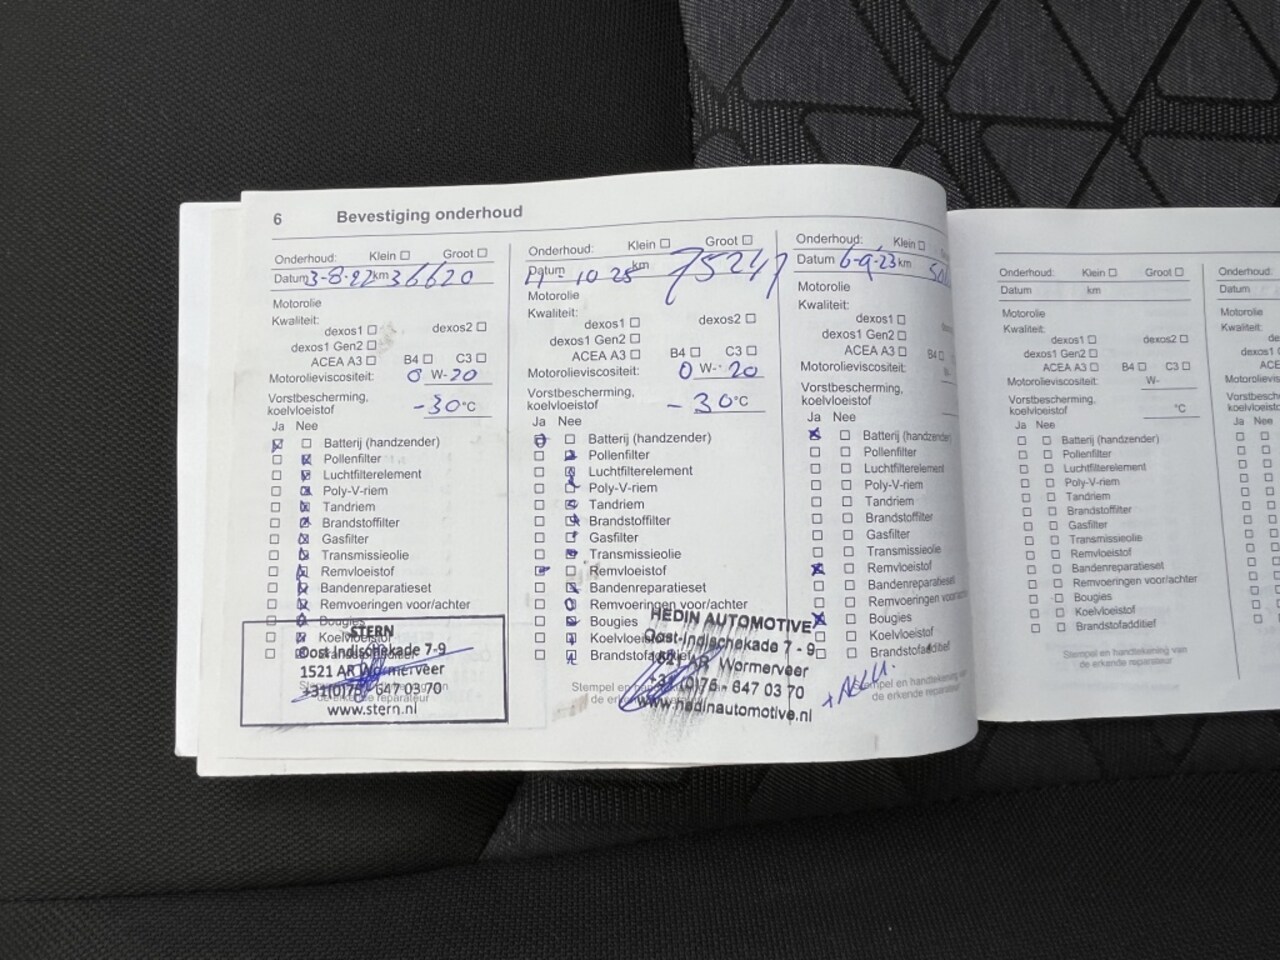 6 Bevestiging onderhoud
Onderhoud: Klein Groot
Datum 3-8-22 km 36620
Motorolie
Kwaliteit:
dexos1 dexos2
dexos1 Gen2
ACEA A3 B4 C3
Motorolieviscositeit: 0 W-20
Vorstbescherming,
koelvloeistof -30 °C
Ja Nee
Batterij (handzender)
Pollenfilter
Luchtfilterelement
Poly-V-riem
Tandriem
Brandstoffilter
Gasfilter
Transmissieolie
Remvloeistof
Bandenreparatieset
Remvoeringen voor/achter
Bougies
Koelvloeistof
STERN
Oost-Indischekade 7-9
1521 AR Wormerveer
+31(0)75- 647 03 70
www.stern.nl
Onderhoud: Klein Groot
Datum 10 25 km
Motorolie
Kwaliteit:
dexos1 dexos2
dexos1 Gen2
ACEA A3 B4 C3
Motorolieviscositeit: 0 W- 20
Vorstbescherming,
koelvloeistof - 30 °C
Ja Nee
Batterij (handzender)
Pollenfilter
Luchtfilterelement
Poly-V-riem
Tandriem
Brandstoffilter
Gasfilter
Transmissieolie
Remvloeistof
Bandenreparatieset
Remvoeringen voor/achter
Bougies
Koelvloeistof
Brandstofadditief
HEDIN AUTOMOTIVE
Oost-Indischekade 7 - 9
AR Wormerveer
+31 (0)75 - 647 03 70
www.hedinautomotive.nl
Onderhoud: Klein
Datum 6-9-23 km
Motorolie
Kwaliteit:
dexos1
dexos1 Gen2
ACEA A3 B4
Motorolieviscositeit: W-
Vorstbescherming,
koelvloeistof
Ja Nee
Batterij (handzender
Pollenfilter
Luchtfilterelement
Poly-V-riem
Tandriem
Brandstoffilter
Gasfilter
Transmissieolie
Remvloeistof
Bandenreparatieset
Remvoeringen voor/achter
Bougies
Koelvloeistof
Brandstofadditief
Stempel en handtekening van
de erkende reparateur
Onderhoud: Klein Groot
Datum km
Motorolie
Kwaliteit:
dexos1 dexos2
dexos1 Gen2
ACEA A3 B4 C3
Motorolieviscositeit: W-
Vorstbescherming,
koelvloeistof °C
Ja Nee
Batterij (handzender)
Pollenfilter
Luchtfilterelement
Poly-V-riem
Tandriem
Brandstoffilter
Gasfilter
Transmissieolie
Remvloeistof
Bandenreparatieset
Remvoeringen voor/achter
Bougies
Koelvloeistof
Brandstofadditief
Stempel en handtekening van
de erkende reparateur
Onderhoud:
Datum
Motorolie
Kwaliteit:
Ja Nee